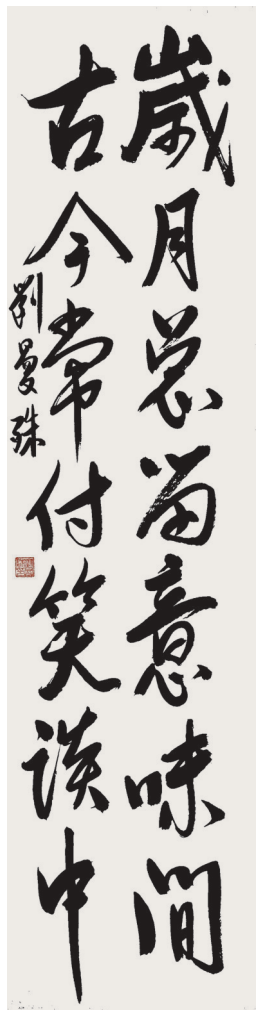 歲月总留意味間
古今常付笑談中
劉曼殊